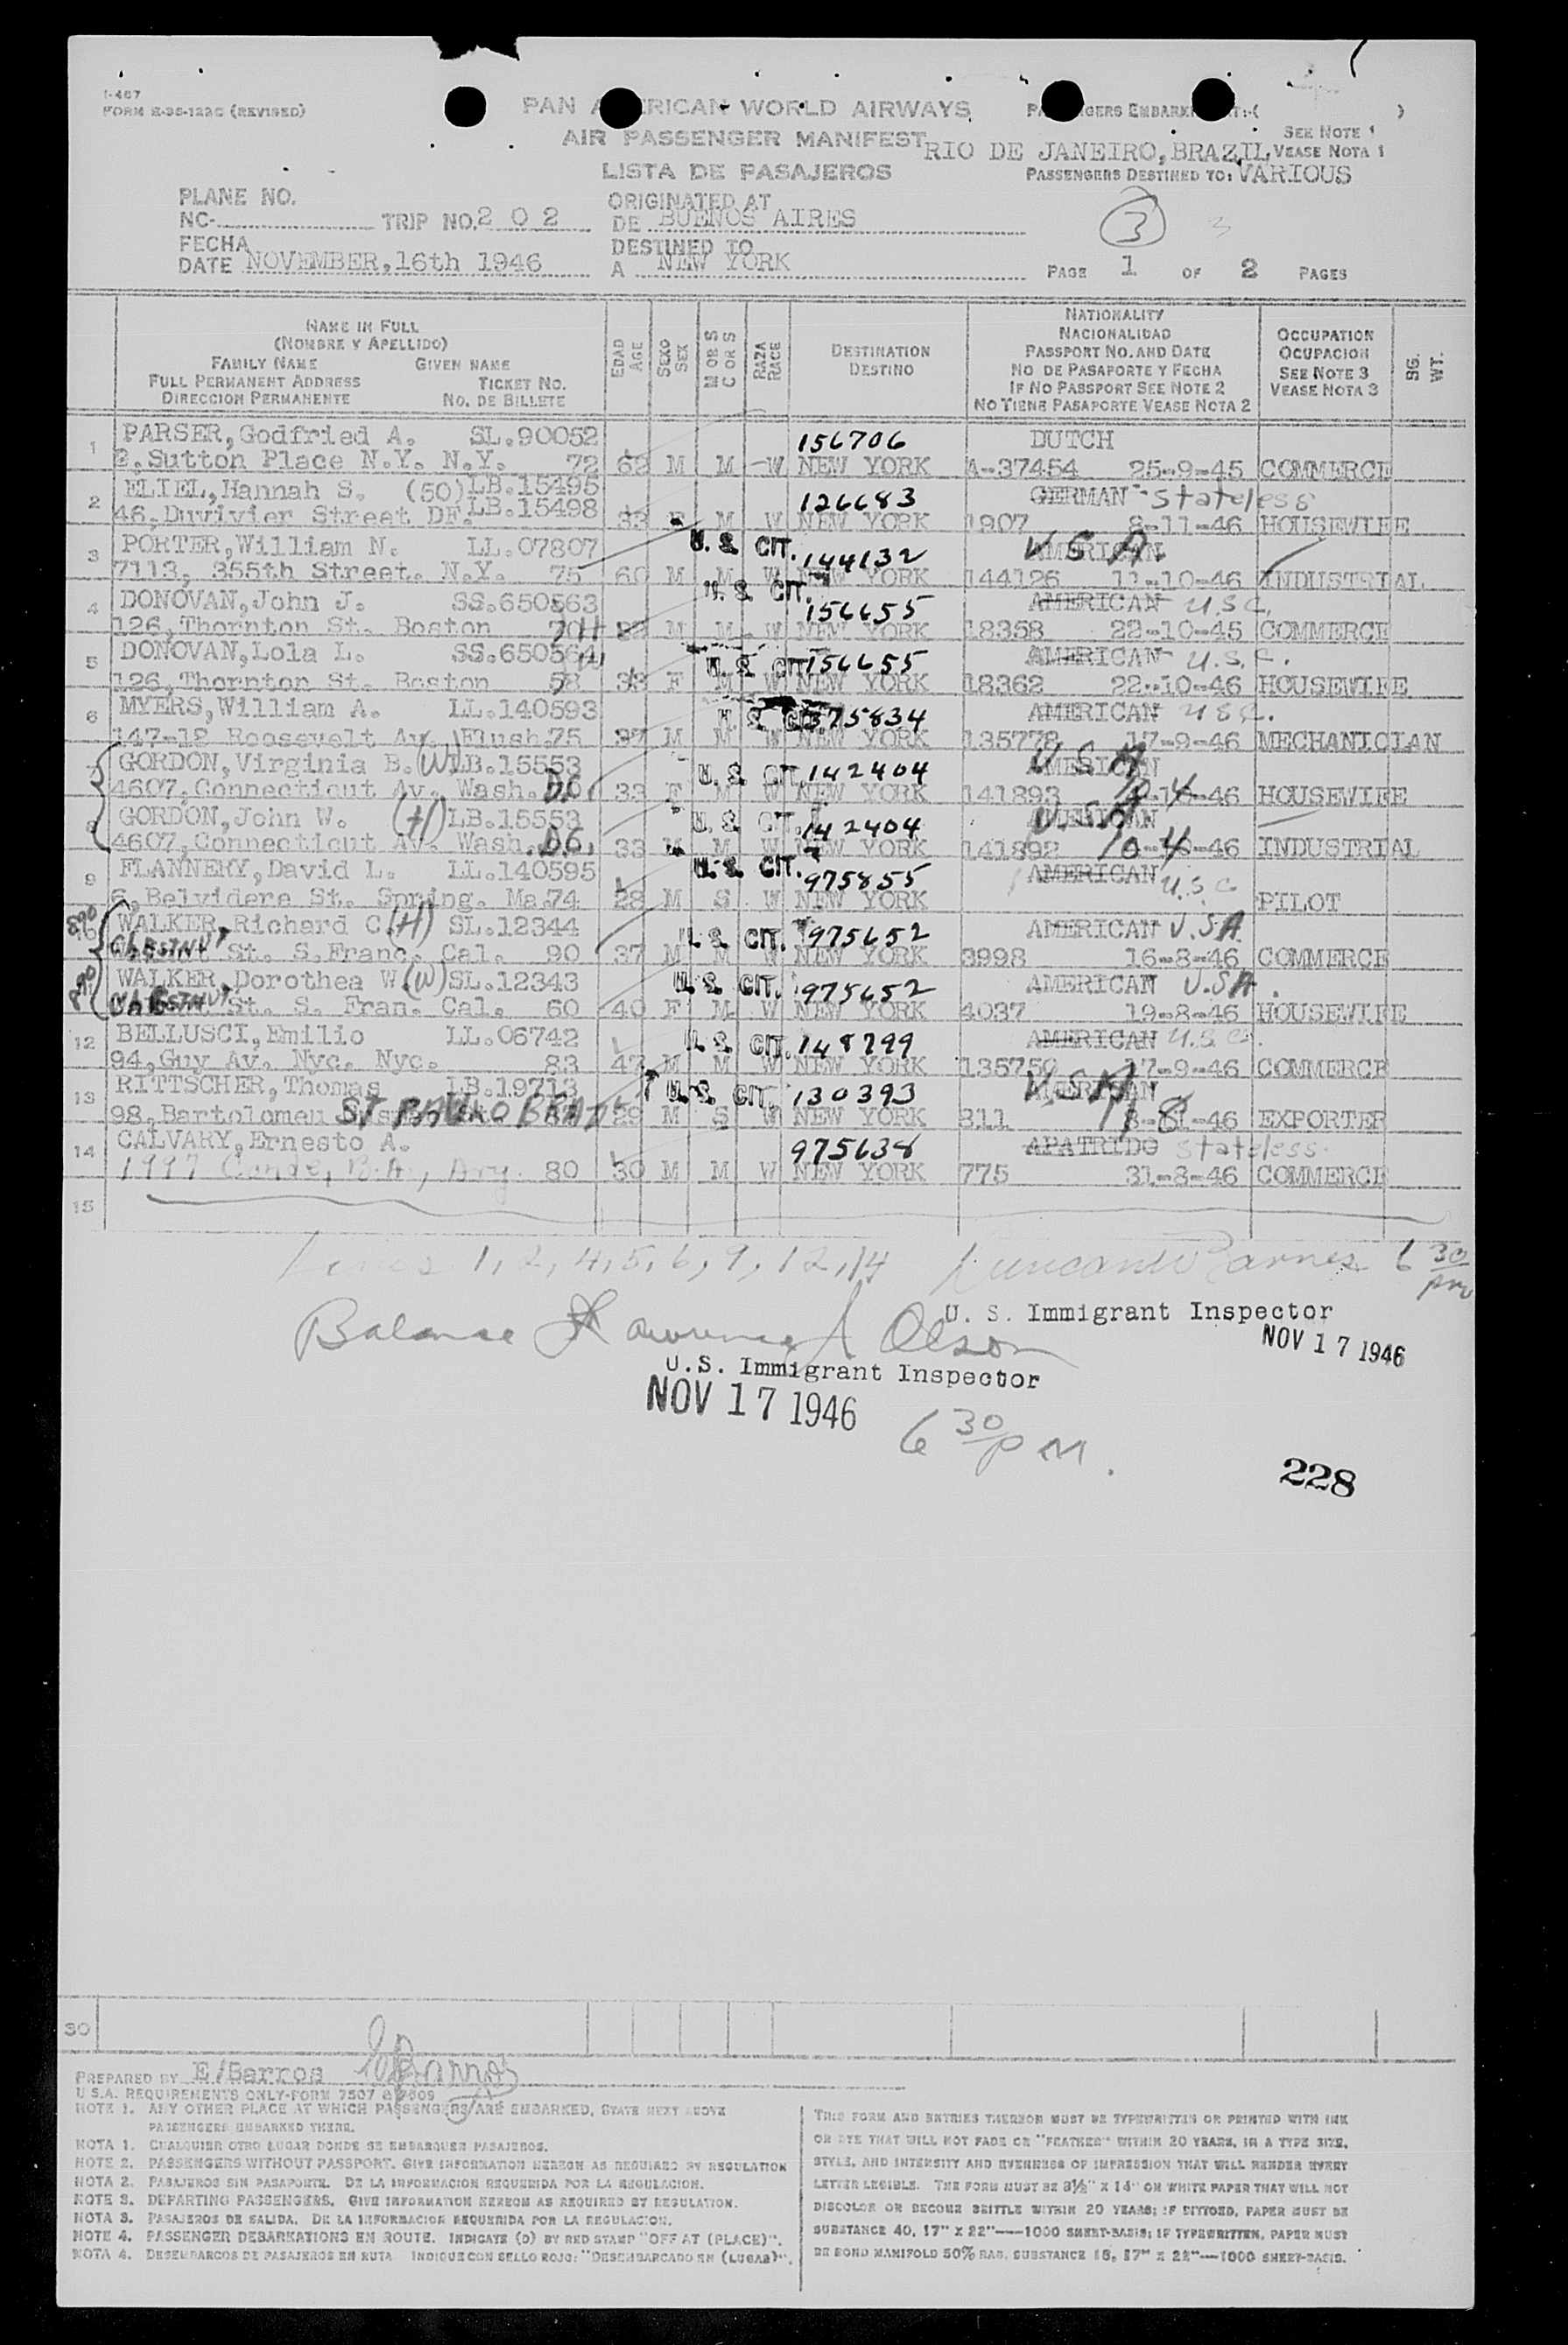 I-467
FORM E-35-122C (REVISED)
PAN AMERICAN WORLD AIRWAYS
AIR PASSENGER MANIFEST
LISTA DE PASAJEROS
SEE NOTE 1
RIO DE JANEIRO, BRAZIL VEASE NOTA 1
PASSENGERS DESTINED TO: VARIOUS
PLANE NO.
NC- TRIP NO. 2 0 2
ORIGINATED AT
DE BUENOS AIRES
FECHA
DATE NOVEMBER, 16th 1946
DESTINED TO
A NEW YORK
3
PAGE 1 OF 2 PAGES
NAME IN FULL
(NOMBRE Y APELLIDO)
FAMILY NAME GIVEN NAME
FULL PERMANENT ADDRESS TICKET NO.
DIRECCION PERMANENTE NO. DE BILLETE
EDAD AGE
SEXO SEX
M OR S
C OR S
RAZA RACE
DESTINATION
DESTINO
NATIONALITY
NACIONALIDAD
PASSPORT NO. AND DATE
NO DE PASAPORTE Y FECHA
IF NO PASSPORT SEE NOTE 2
NO TIENE PASAPORTE VEASE NOTA 2
OCCUPATION
OCUPACION
SEE NOTE 3
VEASE NOTA 3
SG. WT.
1 PARSER, Godfried A. SL.90052 156706 DUTCH
2, Sutton Place N.Y. N.Y. 72 62 M M W NEW YORK A-37454 25-9-45 COMMERCE
2 ELIEL, Hannah S. (50) LB.15495 126683 GERMAN - Stateless
46, Duvivier Street DF. LB.15498 33 F M W NEW YORK 1907 8-11-46 HOUSEWIFE
3 PORTER, William N. LL.07807 U. S. CIT. 144132 AMERICAN U S A.
7113, 355th Street. N.Y. 75 60 M M W NEW YORK 144126 11-10-46 INDUSTRIAL
4 DONOVAN, John J. SS.650563 U. S. CIT. 156655 AMERICAN U.S.C.
126, Thornton St. Boston M M W NEW YORK 18358 22-10-45 COMMERCE
5 DONOVAN, Lola L. SS.650564 U. S. CIT. 156655 AMERICAN U.S.C.
126, Thornton St. Boston 58 33 F M W NEW YORK 18362 22-10-46 HOUSEWIFE
6 MYERS, William A. LL.140593 U. S. CIT. 975834 AMERICAN U S C.
147-12 Roosevelt Av. Flush. 75 37 M M W NEW YORK 135778 17-9-46 MECHANICIAN
7 GORDON, Virginia B. (W) LB.15553 U. S. CIT. 142404 AMERICAN U S A
4607, Connecticut Av. Wash. D.C. 33 F M W NEW YORK 141893 10-4-46 HOUSEWIFE
8 GORDON, John W. (H) LB.15553 U. S. CIT. 142404 AMERICAN U.S.A
4607, Connecticut Av. Wash. D.C. 33 M M W NEW YORK 141892 10-4-46 INDUSTRIAL
9 FLANNERY, David L. LL.140595 U. S. CIT. 975855 AMERICAN U.S.C
6, Belvidere St. Spring. Ma. 74 28 M S W NEW YORK PILOT
890 WALKER, Richard C. (H) SL.12344 U. S. CIT. 975652 AMERICAN U.S.A.
CHESTNUT St. S. Franc. Cal. 90 37 M M W NEW YORK 3998 16-8-46 COMMERCE
890 WALKER, Dorothea W. (W) SL.12343 U. S. CIT. 975652 AMERICAN U.S.A.
CHESTNUT St. S. Fran. Cal. 60 40 F M W NEW YORK 4037 19-8-46 HOUSEWIFE
12 BELLUSCI, Emilio LL.06742 U. S. CIT. 148799 AMERICAN U.S.C.
94, Guy Av. Nyc. Nyc. 83 47 M M W NEW YORK 135750 17-9-46 COMMERCE
13 RITTSCHER, Thomas LB.19713 U. S. CIT. 130393 AMERICAN U.S.A
98, Bartolomeu 29 M S W NEW YORK 311 11-8-46 EXPORTER
14 CALVARY, Ernesto A. 975638 APATRIDO Stateless.
1997 Conde, B.A., Arg. 80 30 M M W NEW YORK 775 31-8-46 COMMERCE
15
Lines 1, 2, 4, 5, 6, 9, 12, 14 6 30 pm
U. S. Immigrant Inspector
NOV 17 1946
Balance Lawrence A Olson
U.S. Immigrant Inspector
NOV 17 1946
6 30 PM.
228
30
PREPARED BY E/Barros
U S.A. REQUIREMENTS ONLY-FORM 7507 & 7509
NOTE 1. ANY OTHER PLACE AT WHICH PASSENGERS ARE EMBARKED, STATE NEXT ABOVE
PASSENGERS EMBARKED THERE.
NOTA 1. CUALQUIER OTRO LUGAR DONDE SE EMBARQUEN PASAJEROS.
NOTE 2. PASSENGERS WITHOUT PASSPORT. GIVE INFORMATION HEREON AS REQUIRED BY REGULATION
NOTA 2. PASAJEROS SIN PASAPORTE. DE LA INFORMACION REQUERIDA POR LA REGULACION.
NOTE 3. DEPARTING PASSENGERS. GIVE INFORMATION HEREON AS REQUIRED BY REGULATION.
NOTA 3. PASAJEROS DE SALIDA. DE LA INFORMACION REQUERIDA POR LA REGULACION.
NOTE 4. PASSENGER DEBARKATIONS EN ROUTE. INDICATE (D) BY RED STAMP "OFF AT (PLACE)".
NOTA 4. DESEMBARCOS DE PASAJEROS EN RUTA INDIQUE CON SELLO ROJO: "DESEMBARCADO EN (LUGAR)".
THIS FORM AND ENTRIES THEREON MUST BE TYPEWRITTEN OR PRINTED WITH INK
OR DYE THAT WILL NOT FADE OR "FEATHER" WITHIN 20 YEARS, IN A TYPE SIZE,
STYLE, AND INTENSITY AND EVENNESS OF IMPRESSION THAT WILL RENDER EVERY
LETTER LEGIBLE. THE FORM MUST BE 8½" X 14" ON WHITE PAPER THAT WILL NOT
DISCOLOR OR BECOME BRITTLE WITHIN 20 YEARS; IF DITTOED, PAPER MUST BE
SUBSTANCE 40, 17" X 22"—1000 SHEET-BASIS; IF TYPEWRITTEN, PAPER MUST
BE BOND MANIFOLD 50% RAG, SUBSTANCE 16, 17" X 22"—1000 SHEET-BASIS.